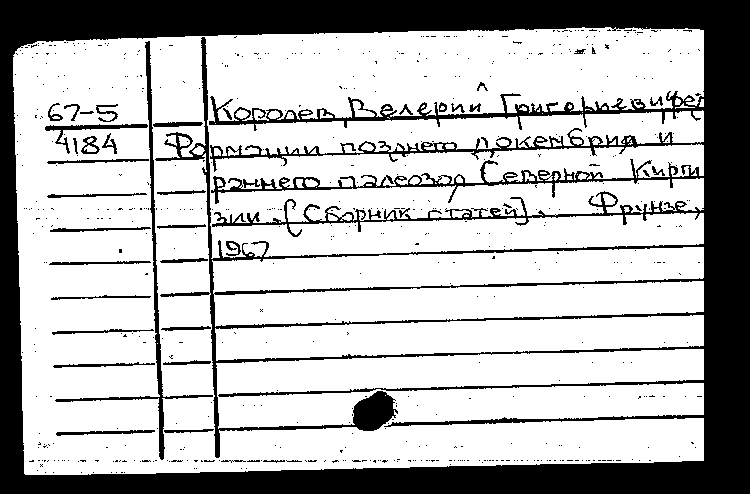 67-5 Королев, Валерий Григориевич
4184 Формации позднего докембрия и
раннего палеозоя Северной Кирги
зии. [Сборник статей]. Фрунзе,
1967